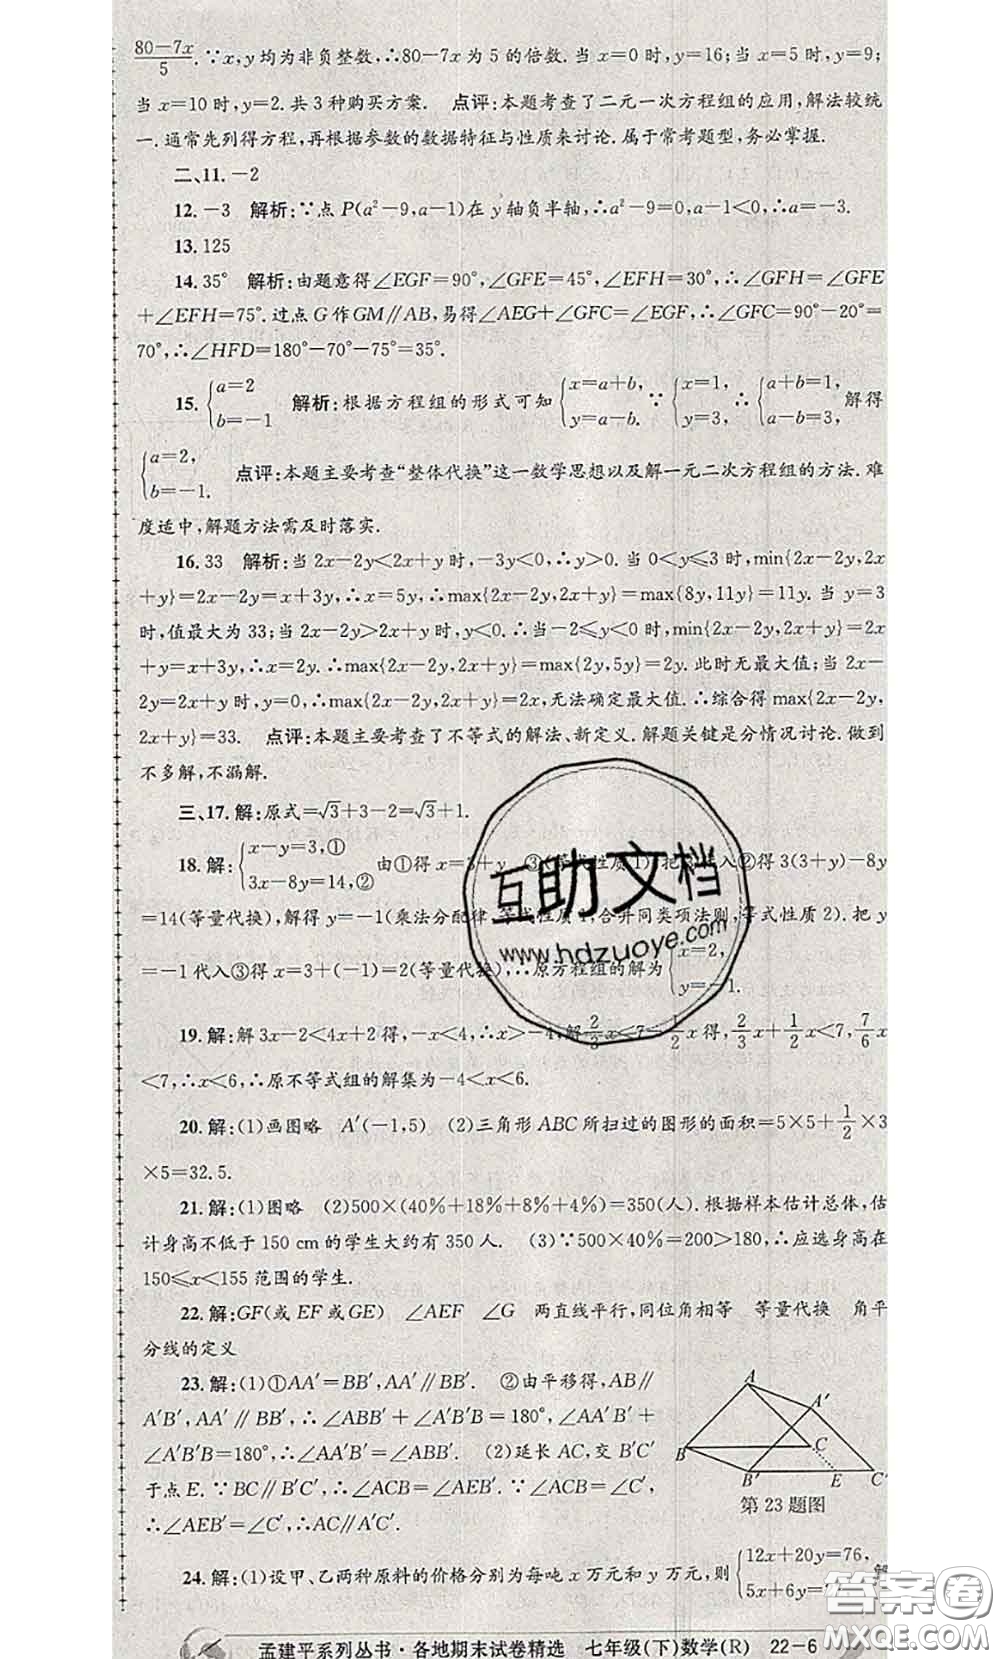 80-7x/5.∵x,y均为非负整数,∴80-7x为5的倍数.当x=0时,y=16;当x=5时,y=9;
当x=10时,y=2.共3种购买方案. 点评:本题考查了二元一次方程组的应用,解法较统
一.通常先列得方程,再根据参数的数据特征与性质来讨论.属于常考题型,务必掌握.
二、11.-2
12.-3 解析:∵点P(a²-9,a-1)在y轴负半轴,∴a²-9=0,a-1<0,∴a=-3.
13.125
14.35° 解析:由题意得∠EGF=90°,∠GFE=45°,∠EFH=30°,∴∠GFH=∠GFE
+∠EFH=75°.过点G作GM∥AB,易得∠AEG+∠GFC=∠EGF,∴∠GFC=90°-20°=
70°,∴∠HFD=180°-70°-75°=35°.
15.{a=2 b=-1 解析:根据方程组的形式可知{x=a+b, y=a-b. ∵{x=1, y=3, ∴{a+b=1, a-b=3, 解得
{a=2, b=-1. 点评:本题主要考查“整体代换”这一数学思想以及解一元二次方程组的方法.难
度适中,解题方法需及时落实.
16.33 解析:当2x-2y<2x+y时,-3y<0,∴y>0.当0<y≤3时,min{2x-2y,2x
+y}=2x-2y=x+3y,∴x=5y,∴max{2x-2y,2x+y}=max{8y,11y}=11y.当y=3
时,值最大为33;当2x-2y>2x+y时,y<0.∴当-2≤y<0时,min{2x-2y,2x+y}=2x
+y=x+3y,∴x=2y.∴max{2x-2y,2x+y}=max{2y,5y}=2y.此时无最大值;当2x-
2y=2x+y时,y=0,∴max{2x-2y,2x+y}=2x,无法确定最大值.∴综合得max{2x-2y,
2x+y}=33. 点评:本题主要考查了不等式的解法、新定义.解题关键是分情况讨论.做到
不多解,不漏解.
三、17.解:原式=√3+3-2=√3+1.
18.解:{x-y=3,① 3x-8y=14,② 由①得x=3+y ③(等式性质1).把③代入②得3(3+y)-8y
=14(等量代换),解得y=-1(乘法分配律,等式性质1,合并同类项法则,等式性质2).把y
=-1代入③得x=3+(-1)=2(等量代换),∴原方程组的解为{x=2, y=-1.
19.解:解3x-2<4x+2得,-x<4,∴x>-4,解2/3x<7-1/2x得,2/3x+1/2x<7,7/6x
<7,∴x<6,∴原不等式组的解集为-4<x<6.
20.解:(1)画图略 A′(-1,5) (2)三角形ABC所扫过的图形的面积=5×5+1/2×3
×5=32.5.
21.解:(1)图略 (2)500×(40%+18%+8%+4%)=350(人).根据样本估计总体,估
计身高不低于150 cm的学生大约有350人. (3)∵500×40%=200>180,∴应选身高在
150≤x<155范围的学生.
22.解:GF(或EF或GE) ∠AEF ∠G 两直线平行,同位角相等 等量代换 角平
分线的定义
23.解:(1)①AA′=BB′,AA′∥BB′. ②由平移得,AB∥
A′B′,AA′∥BB′,∴∠ABB′+∠A′B′B=180°,∠AA′B′+
∠A′B′B=180°,∴∠AA′B′=∠ABB′. (2)延长AC,交B′C′
于点E.∵BC∥B′C′,∴∠ACB=∠AEB′.∵∠ACB=∠C′,
∴∠AEB′=∠C′,∴AC∥A′C′.
A
A′
B
C
B′
E
C′
第23题图
24.解:(1)设甲、乙两种原料的价格分别为每吨x万元和y万元,则{12x+20y=76, 5x+6y= 解
孟建平系列丛书·各地期末试卷精选 七年级(下)数学(R) 22-6
互助文档
www.hdzuoye.com
答案卷